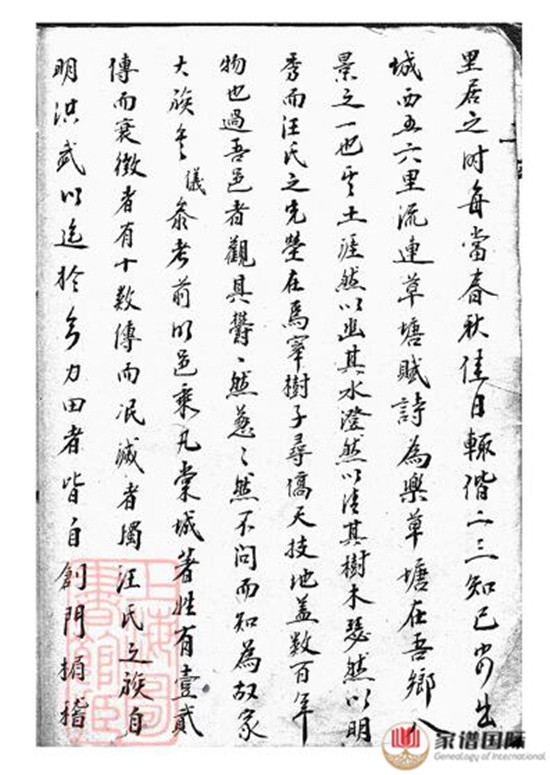 里居之时每當春秋佳日輙偕二三知己步出
城西五六里流連草塘賦詩為樂草塘在吾鄉八
景之一也其土涯然以幽其水澄然以清其樹木瑟然以明
秀而汪氏之先塋在焉宰樹千尋僑天技地盖数百年
物也過吾邑者觀其欝〻然葱〻然不问而知為故家
大族矣議叅考前明邑乘凡棠城著姓有壹貳
傳而衰微者有十数傳而泯滅者獨汪氏之族自
明洪武以迄於今力田者皆自創門搢
上海圖書館藏
家谱国际
Genealogy of International